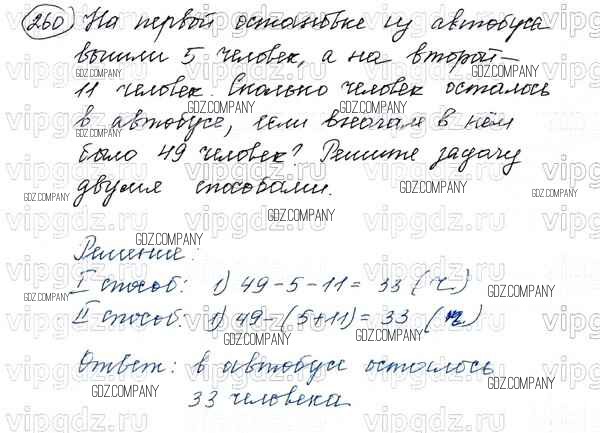 260 На первой остановке из автобуса
вышли 5 человек, а на второй –
11 человек. Сколько человек осталось
в автобусе, если вначале в нём
было 49 человек? Решите задачу
двумя способами.
Решение:
I способ: 1) 49-5-11= 33 (ч.)
II способ: 1) 49-(5+11)= 33 (ч.)
Ответ: в автобусе осталось
33 человека